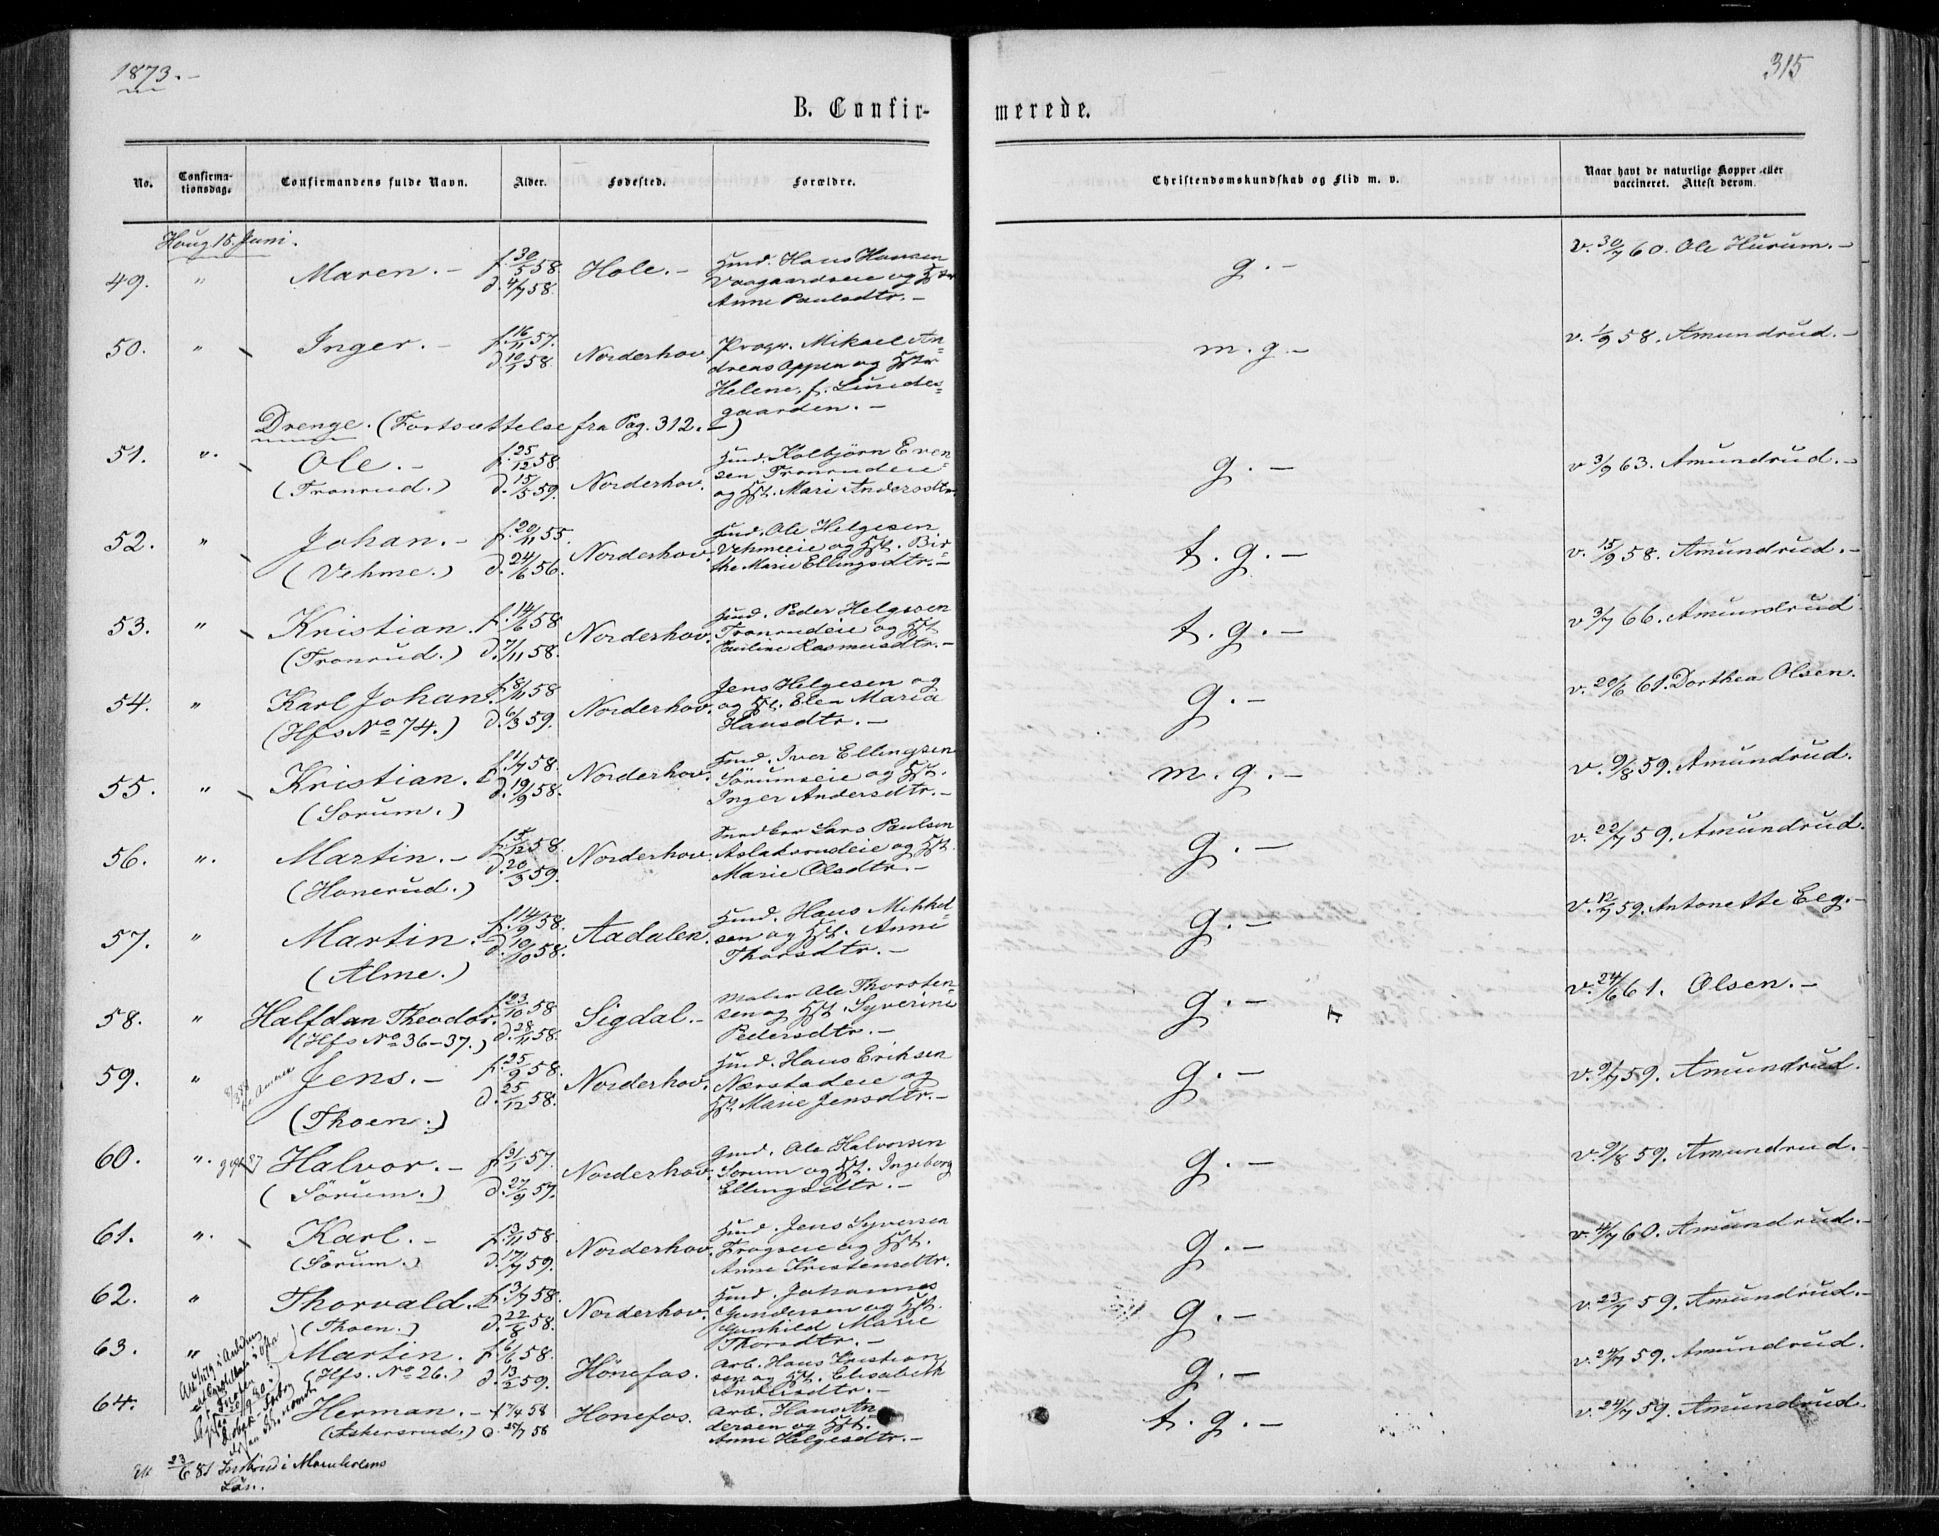 1873.
315
B. Confir-
merede.
No.
Confirma-
tionsdag.
Confirmandens fulde Navn.
Alder.
Fødested.
Forældre.
Christendomskundskab og Flid m. v.
Naar havt de naturlige Kopper eller
vaccineret. Attest derom.
Houg 15. Juni.
49. " Maren. - f. 30/5 58 d. 4/7 58. Hole. -
Hans Hansen
og
Anne Paulsdtr. -
g. -
v. 30/7 60. Ole Hurum. -
50. " Inger. - f. 16/11 57. d. 10/1 58. Norderhov.
Mikael An-
dreas Oppen og
Helene, f. Lunde-
gaarden. -
m. g. -
v. 1/9 58. Amundrud. -
Drenge. (Fortsættelse fra Pag. 312. -)
51. " Ole. - f. 25/12 58. d. 15/5 59. Norderhov.
(Tronrud.)
Kolbjörn Even-
sen Tronrudeie
og Mari Andersdtr.
g. -
v 3/9 63. Amundrud. -
52. " Johan. - f. 20/11 55. d. 24/6 56. Norderhov.
(Vehme.)
Ole Helgesen
Vehmeeie og Bir-
the Marie Ellingsdtr. -
t. g. -
v. 15/9 58. Amundrud. -
53. " Kristian. f. 14/6 58 d. 7/11 58. Norderhov.
(Tronrud.)
Peder Helgesen
Tronrudeie og
Pauline Rasmusdtr. -
t. g. -
v 3/7 66. Amundrud
54. " Karl Johan. f. 8/11 58 d. 6/3 59. Norderhov.
(Hfs No 74.)
Jens Helgesen og
og Elen Maria
Hansdtr. -
g. -
v. 20/6 61. Dorthea Olsen.
55. " Kristian. f. 1/7 58. d. 19/9 58. Norderhov.
(Sorum.)
Iver Ellingsen
Sörumseie og
Inger Andersdtr. -
m. g. -
v. 9/8 59. Amundrud.
56. " Martin. - f. 5/12 58. d. 20/3 59. Norderhov.
(Honerud.)
Lars Paulsen
Aslaksrudeie og
Marie Olsdtr. -
g. -
v. 22/7 59. Amundrud.
57. " Martin. f. 14/9 58. d. 10/10 58. Aadalen.
(Alme.)
Hans Mikkel-
sen og Anne
Thorsdtr. -
g. -
v. 12/7 59. Antonette Eeg. -
58. " Halfdan Theodor. f. 23/10 58 d. 28/11 58. Sigdal. -
(Hfs No 36-37.)
Maler Ole Thorsten-
sen og Syverine
Pedersdtr. -
g. -
v. 24/6 61. Olsen. -
59. " Jens. - f. 25/9 58. d. 25/12 58. Norderhov.
(Thoen.)
Hans Eriksen
Nærstadeie og
Marie Jensdtr. -
g. -
v. 9/7 59. Amundrud.
60. " Halvor. - f. 31/1 57. d. 27/9 57. Norderhov.
(Sörum.)
Ole Halvorsen
Sorum og Ingeborg
Ellingsdtr. -
g. -
v. 9/8 59. Amundrud. -
61. " Karl. - f. 3/11 58 d. 17/7 59. Norderhov.
(Sorum.)
Jens Syversen
og
Anne Kristensdtr.
g. -
v. 4/7 60. Amundrud. -
62. " Thorvald. f. 3/7 58. d. 22/8 58. Norderhov.
(Thoen.)
Johannes
Gundersen og
Gunhild Marie
Thorsdtr. -
g. -
v. 23/7 59. Amundrud. -
63. " Martin. f. 6/6 58. d. 13/2 59. Hönefos.
(Hfs. No 26.)
Arb. Hans Kristian
sen og Elisabeth
g. -
v. 24/7 59. Amundrud.
64. Herman. - f 17/4 58 d. 25/7 58 Honefos.
(Askersrud.)
Arb. Hans An
dersen og
Anne Helgesdtr. -
t. g. -
v. 24/7 59. Amundrud.
23/6 81 i
Län.